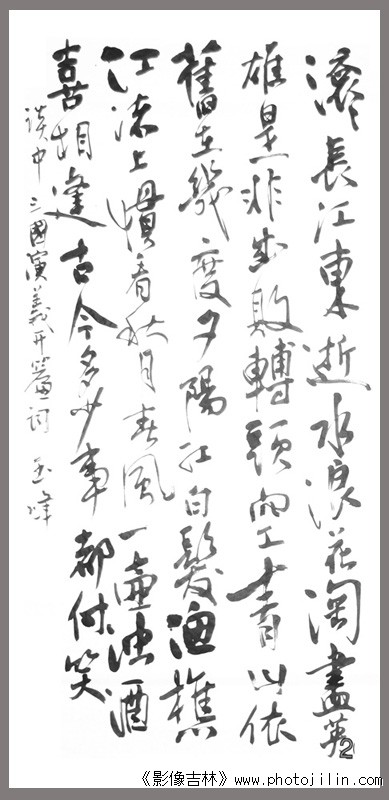 滚々長江東逝水浪花淘盡英
雄是非成敗轉頭空青山依
舊在幾度夕陽红白髮漁樵
江渚上慣看秋月春風一壺浊酒
喜相逢古今多少事都付笑
談中 三國演義开篇詞 玉峰
2
《影像吉林》www.photojilin.com